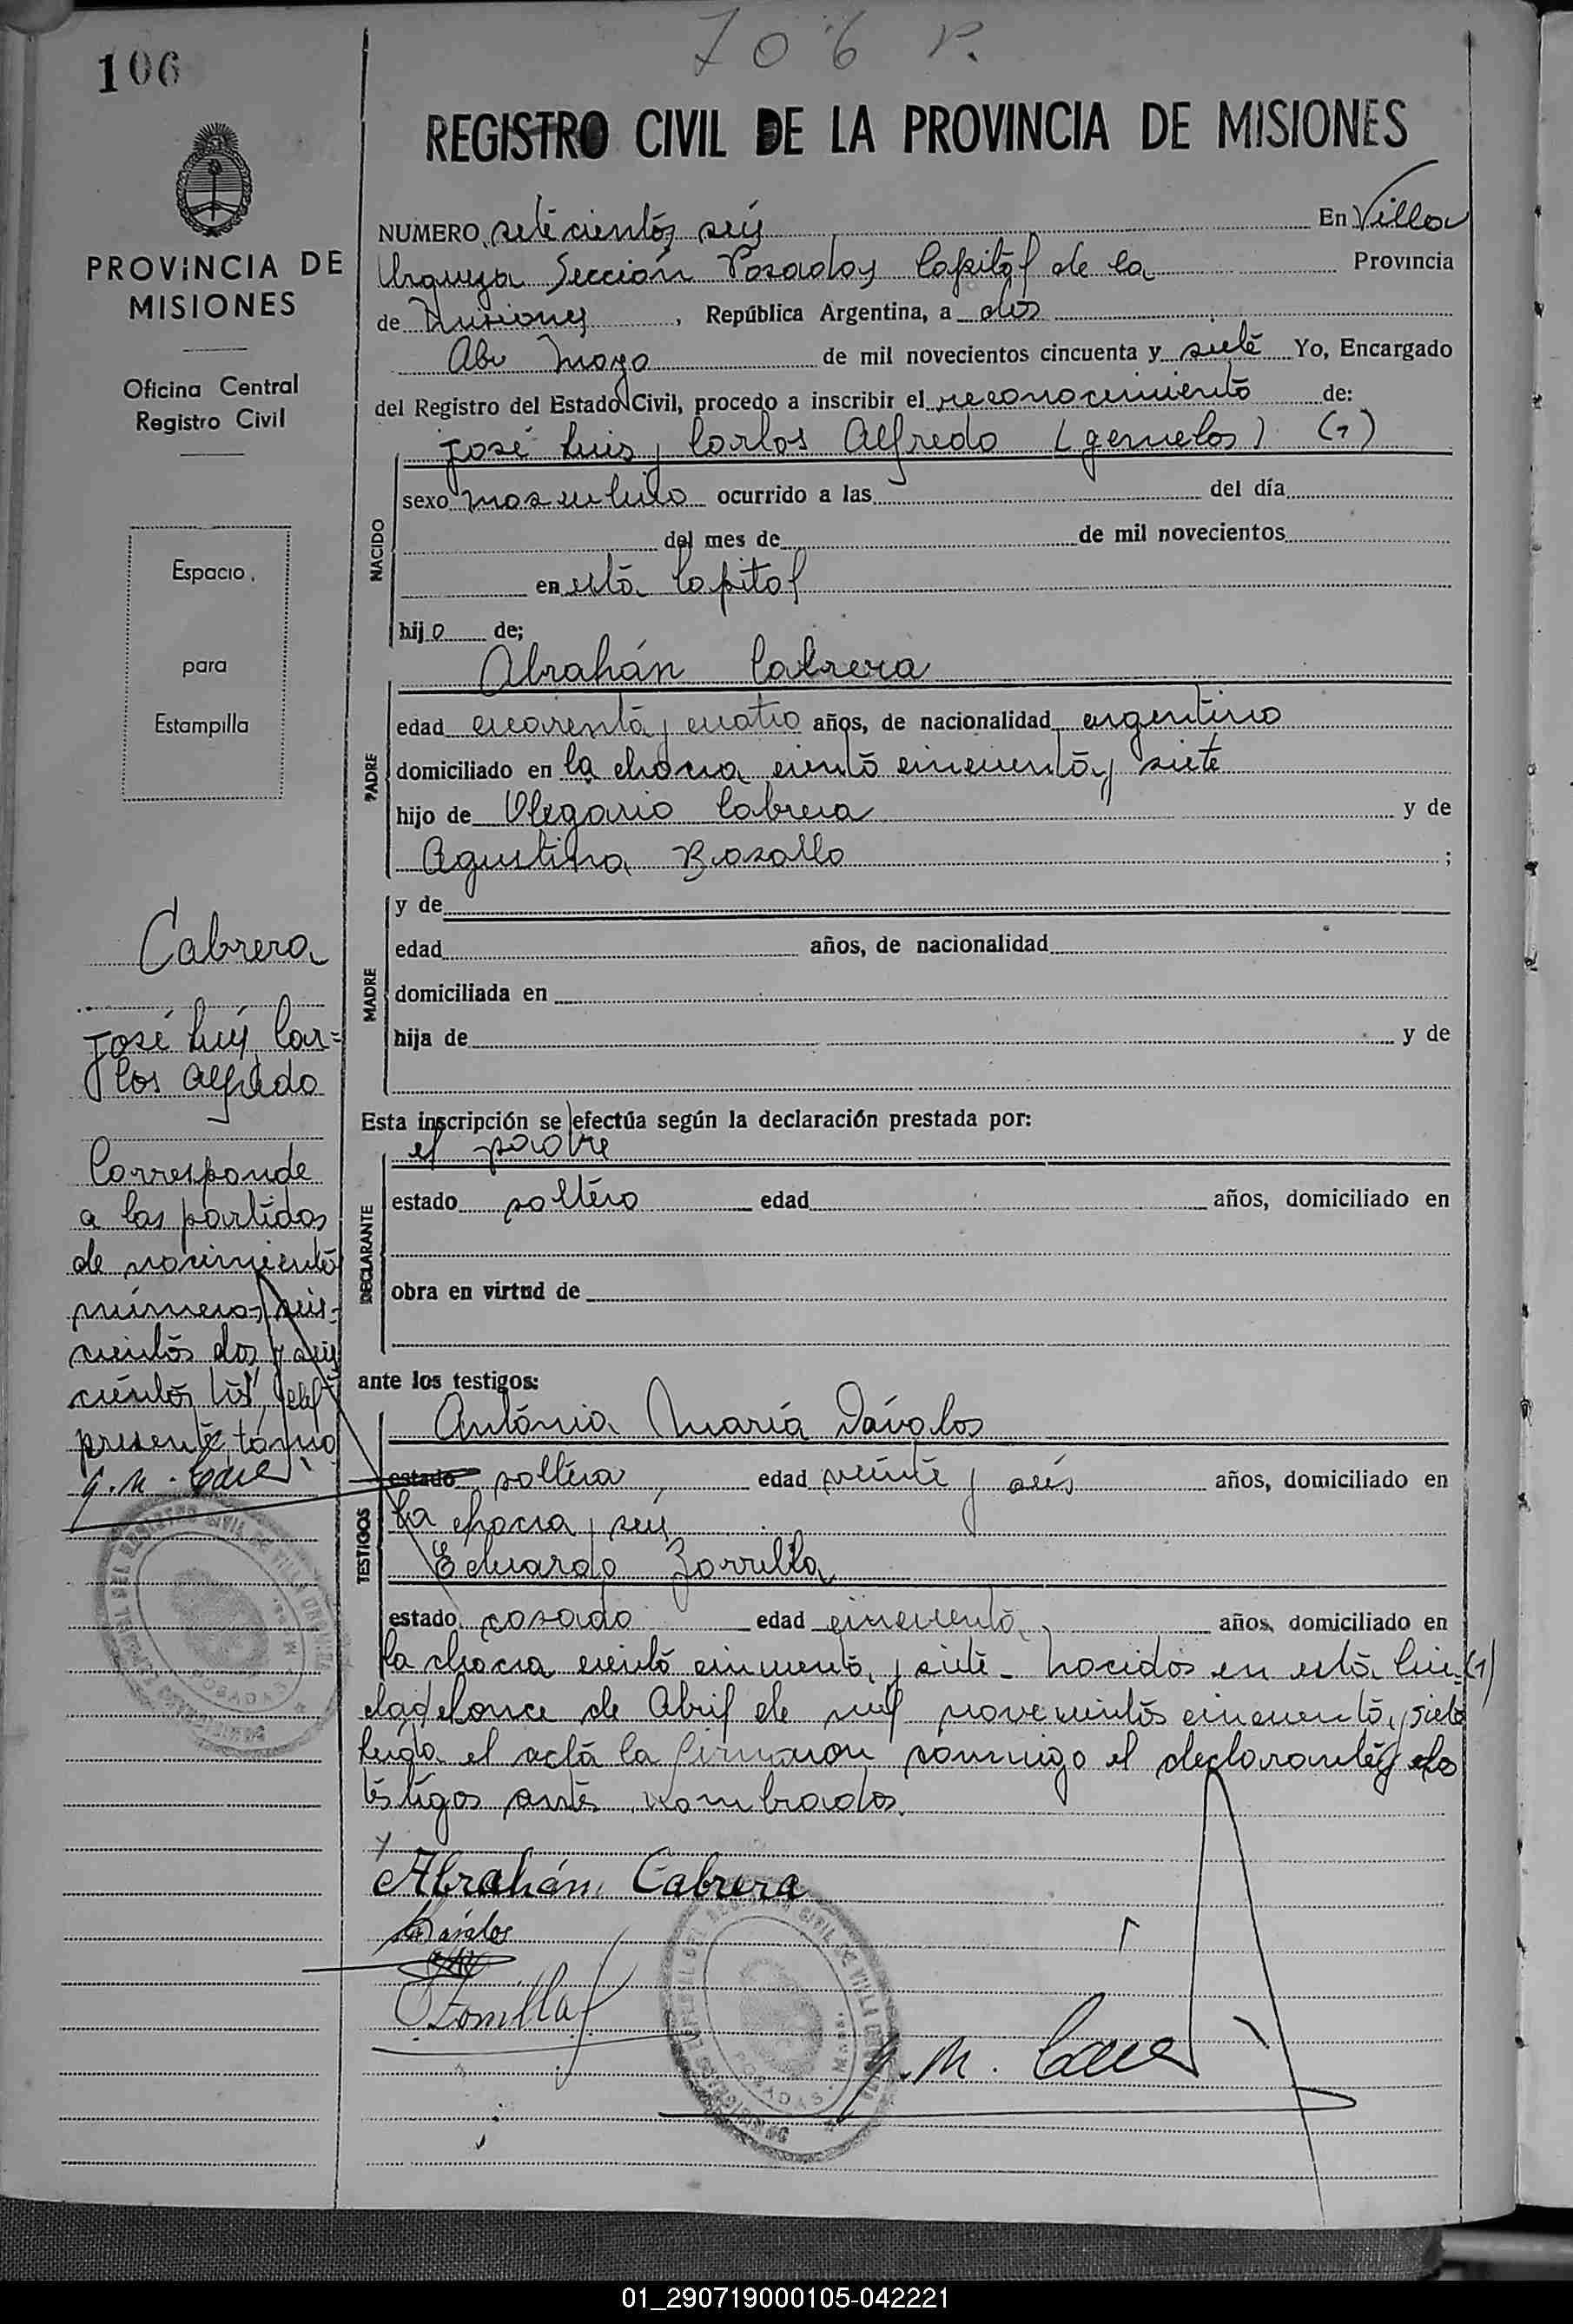 106
706 P.
REGISTRO CIVIL DE LA PROVINCIA DE MISIONES
PROVINCIA DE
MISIONES
Oficina Central
Registro Civil
Espacio
para
Estampilla
NUMERO setecientos seis En Villa
Urquiza Sección Posadas Capital de la Provincia
de Misiones, República Argentina, a dos
de Mayo de mil novecientos cincuenta y siete Yo, Encargado
del Registro del Estado Civil, procedo a inscribir el reconocimiento de:
José Luis y Carlos Alfredo (gemelos) (1)
NACIDO
sexo masculino ocurrido a las del día
del mes de de mil novecientos
en esta Capital
hijo de;
Abrahán Cabrera
PADRE
edad cuarenta y cuatro años, de nacionalidad argentino
domiciliado en la chacra ciento cincuenta y siete
hijo de Olegario Cabrera y de
Agustina Basallo;
MADRE
y de
edad años, de nacionalidad
domiciliada en
hija de y de
Esta inscripción se efectúa según la declaración prestada por:
el padre
DECLARANTE
estado soltero edad años, domiciliado en
obra en virtud de
ante los testigos:
Antonia María Dávalos
TESTIGOS
estado soltera edad veinte y seis años, domiciliado en
la chacra seis
Eduardo Zorrilla
estado casado edad cincuenta años, domiciliado en
la chacra ciento cincuenta y siete - Nacidos en esta Ciu (1)
dad el once de Abril de mil novecientos cincuenta y siete
leida el acta la firmaron conmigo el declarante y los
testigos antes nombrados.
Abrahán Cabrera
Dávalos
EZorrilla
Cabrera
José Luis Car=
los Alfredo
Corresponde
a las partidas
de nacimiento
números seis-
cientos dos y seis
cientos tres del
presente tomo
01_290719000105-042221